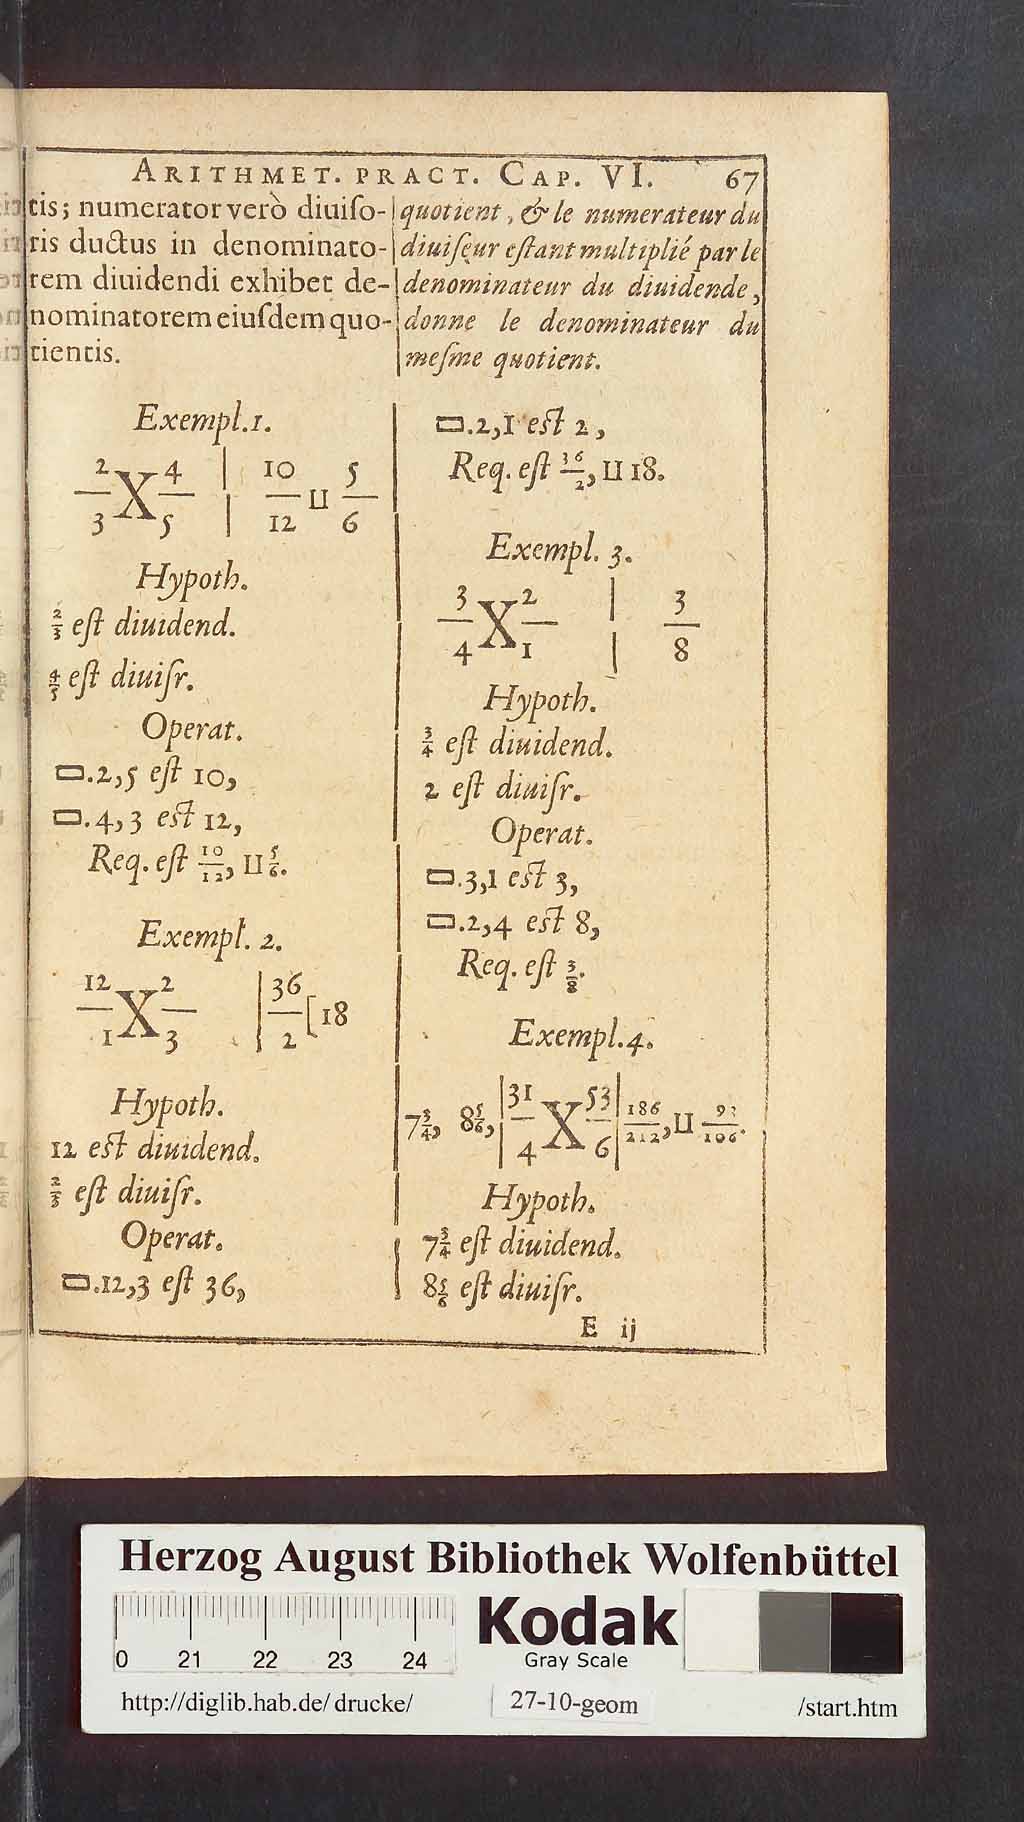 ARITHMET. PRACT. CAP. VI. 67
tis; numerator verò diuiſo-
ris ductus in denominato-
rem diuidendi exhibet de-
nominatorem eiuſdem quo-
tientis.
quotient, & le numerateur du
diuiſeur eſtant multiplié par le
denominateur du diuidende,
donne le denominateur du
meſme quotient.
Exempl. 1.
2/3 X 4/5 | 10/12 ⊔ 5/6
Hypoth.
2/3 eſt diuidend.
4/5 eſt diuiſr.
Operat.
▭.2,5 eſt 10,
▭.4,3 eſt 12,
Req. eſt 10/12, ⊔ 5/6.
Exempl. 2.
12/1 X 2/3 | 36/2 [18
Hypoth.
12 eſt diuidend.
2/3 eſt diuiſr.
Operat.
▭.12,3 eſt 36,
▭.2,1 eſt 2,
Req. eſt 36/2, ⊔ 18.
Exempl. 3.
3/4 X 2/1 | 3/8
Hypoth.
3/4 eſt diuidend.
2 eſt diuiſr.
Operat.
▭.3,1 eſt 3,
▭.2,4 eſt 8,
Req. eſt 3/8.
Exempl. 4.
7 3/4, 8 5/6, | 31/4 X 53/6 | 186/212, ⊔ 93/106.
Hypoth.
7 3/4 eſt diuidend.
8 5/6 eſt diuiſr.
E ij
Herzog August Bibliothek Wolfenbüttel
0 21 22 23 24
Kodak
Gray Scale
http://diglib.hab.de/drucke/ 27-10-geom /start.htm